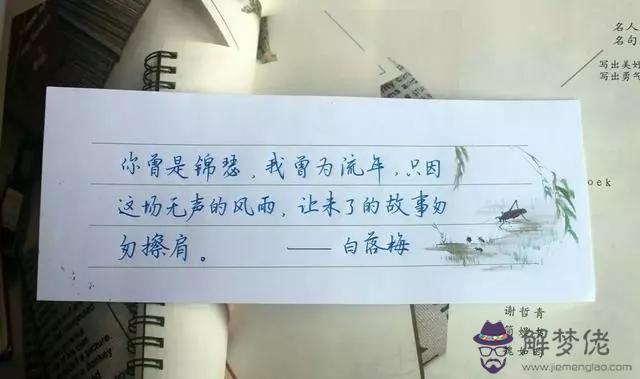 名人
名句
写出美好
写出勇气
你曾是锦瑟，我曾为流年，只因
这场无声的风雨，让来了的故事匆
匆擦肩。 ——白落梅
oek
谢哲青
解梦佬
www.jiemenglao.com